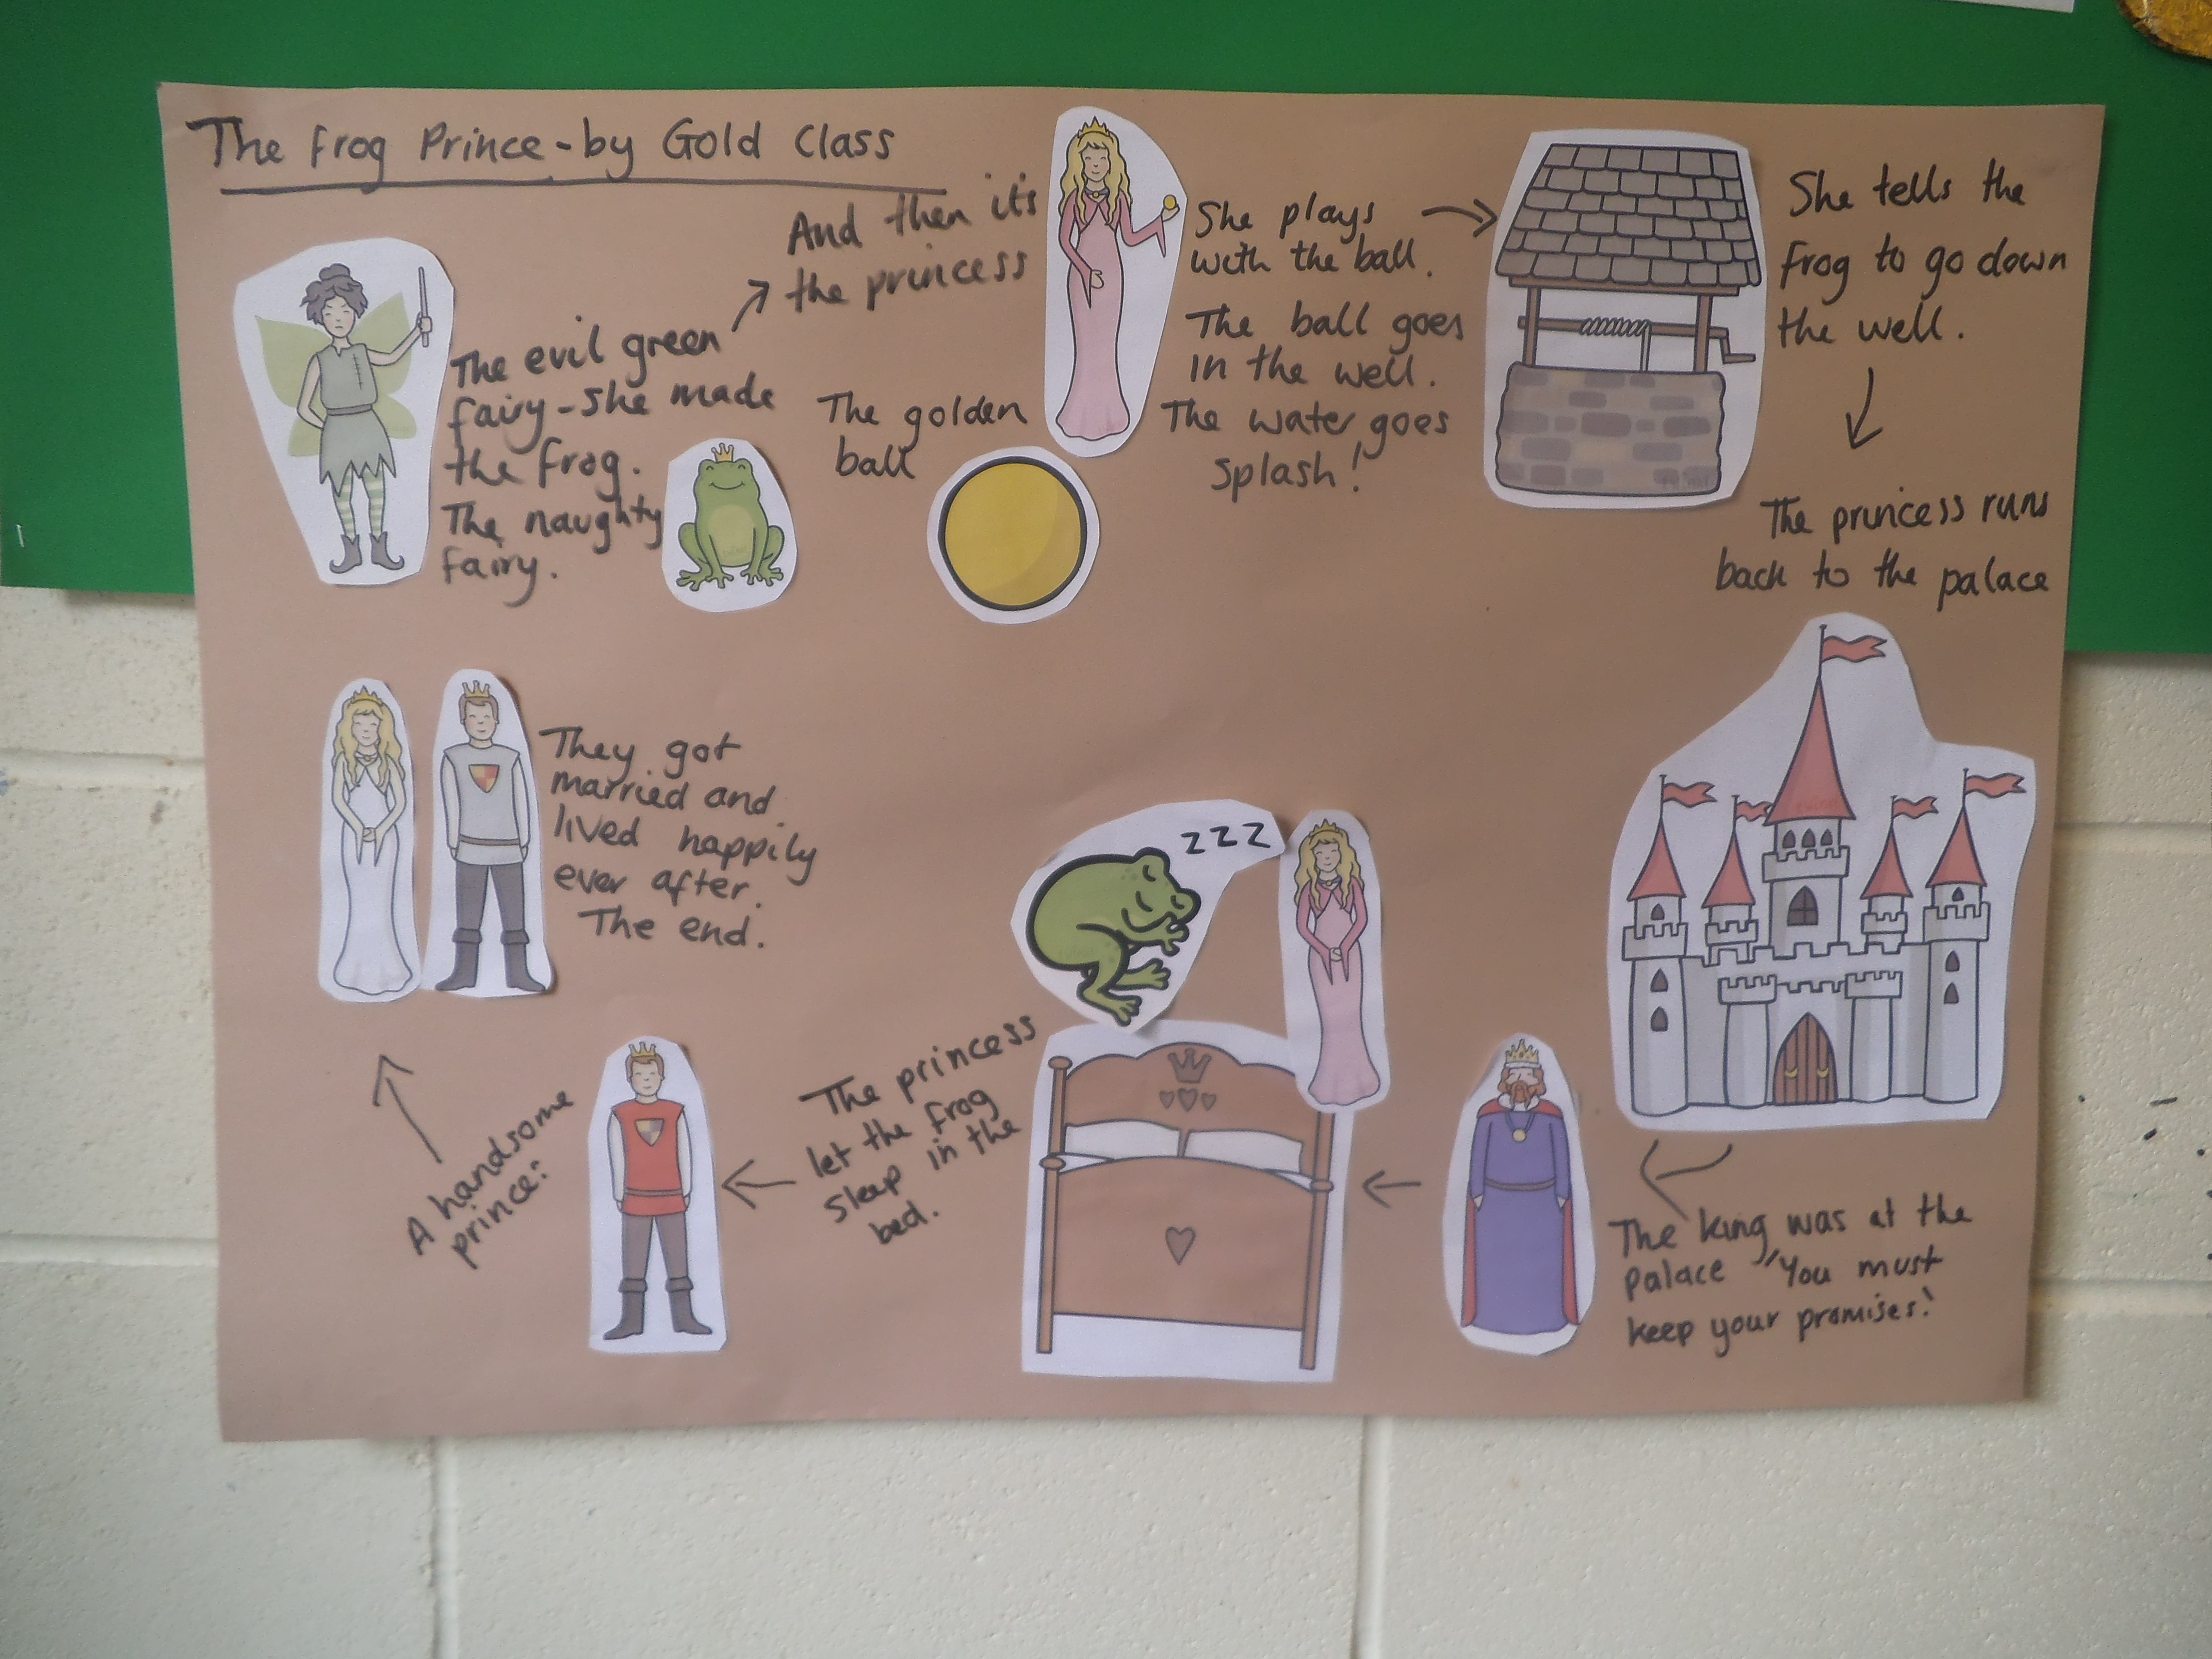 The Frog Prince - by Gold Class
The evil green
fairy - she made
the frog.
The naughty
fairy.
And then it's
the princess
The golden
ball
She plays
with the ball.
The ball goes
in the well.
The water goes
splash!
She tells the
frog to go down
the well.
The princess runs
back to the palace
The king was at the
palace "You must
keep your promises!
zzz
The princess
let the frog
sleep in the
bed.
A handsome
prince!
They got
married and
lived happily
ever after.
The end.